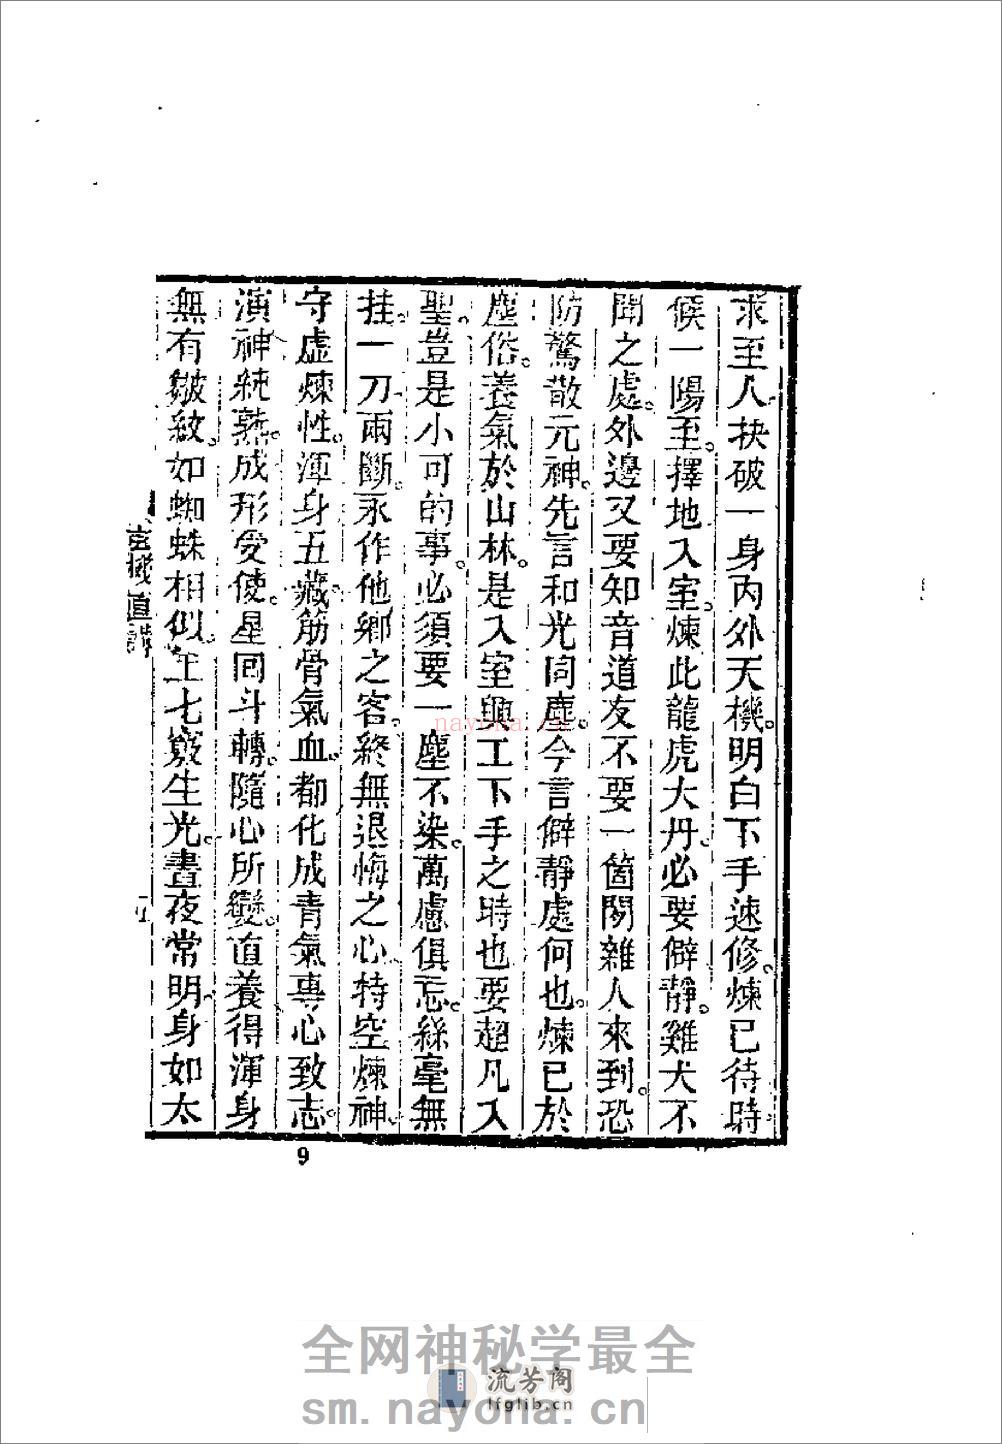 求至人抉破一身內外天機。明白下手速修。煉己待時
候一陽至。擇地入室。煉此龍虎大丹。必要僻靜。雞犬不
聞之處。外邊又要知音道友不要一箇閑雜人來到。恐
防驚散元神。先言和光同塵。今言僻靜處何也。煉己於
塵俗。養氣於山林。是入室臨工下手之時也要超凡入
聖。豈是小可的事。必須要一塵不染。萬慮俱忘。絲毫無
挂。一刀兩斷。永作他鄉之客。終無退悔之心。持空煉神。
守虛煉性。渾身五藏。筋骨氣血。都化成青氣。專心致志。
演神純熟。成形受使。星回斗轉。隨心所變。直養得渾身
無有皺紋。如蜘蛛相似。上七竅生光。晝夜常明。身如太
玄機直講
五
9
nayona.cn
全网神秘学最全
流芳阁
lfglib.cn
sm.nayona.cn